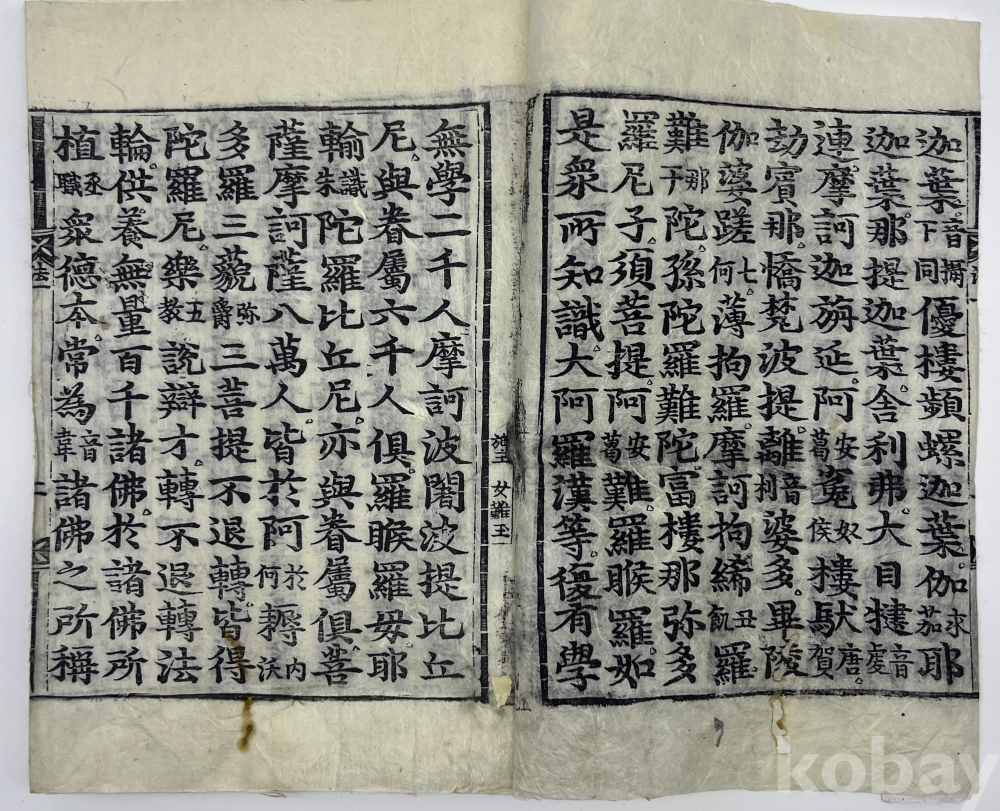 迦葉音攝下同優樓頻螺迦葉伽求茄耶
迦葉那提迦葉舍利弗大目揵音虔
連摩訶迦旃延阿安葛㝹奴侯樓馱唐賀
劫賓那憍梵波提離音利婆多畢陵
伽婆蹉七何薄拘羅摩訶拘絺丑飢羅
難那干陀孫陀羅難陀富樓那弥多
羅尼子須菩提阿安葛難羅睺羅如
是衆所知識大阿羅漢等復有學
無學二千人摩訶波闍波提比丘
尼與眷屬六千人俱羅睺羅毋耶
輸識朱陀羅比丘尼亦與眷屬俱菩
薩摩訶薩八萬人皆於阿於何耨内沃
多羅三藐弥爵三菩提不退轉皆得
陀羅尼樂五教說辯才轉不退轉法
輪供養無量百千諸佛於諸佛所
植丞職衆德本常為音韋諸佛之所稱
法
kobay